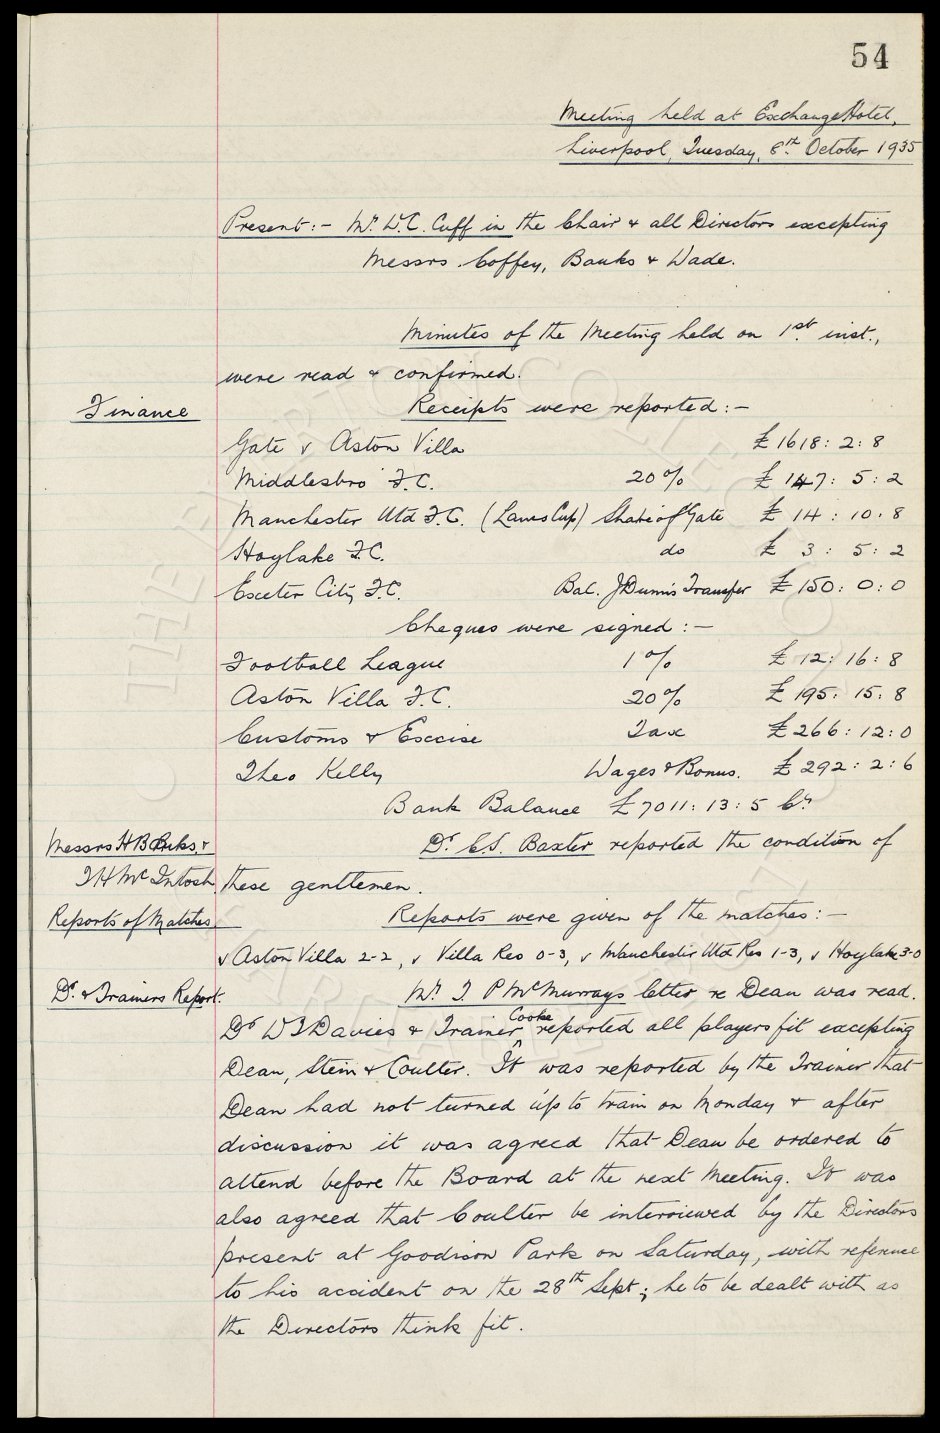 54
Meeting held at Exchange Hotel,
Liverpool, Tuesday, 8th October 1935
Present:- Mr. W.C. Cuff in the Chair & all Directors excepting
Messrs. Coffey, Banks & Wade.
Minutes of the Meeting held on 1st. inst.,
were read & confirmed.
Finance
Receipts were reported:-
Gate v Aston Villa £1618: 2: 8
Middlesbro' F.C. 20% £147: 5: 2
Manchester Utd F.C. (Lancs Cup) Share of Gate £14: 10: 8
Hoylake F.C. do £3: 5: 2
Exeter City F.C. Bal. J Dunn's Transfer £150: 0: 0
Cheques were signed:-
Football League 1% £12: 16: 8
Aston Villa F.C. 20% £195: 15: 8
Customs & Excise Tax £266: 12: 0
Theo Kelly Wages & Bonus. £292: 2: 6
Bank Balance £7011: 13: 5 Cr
Messrs H Banks &
T H McIntosh
Dr. C.S. Baxter reported the condition of
these gentlemen.
Reports of Matches
Reports were given of the matches:-
v Aston Villa 2-2, v Villa Res 0-3, v Manchester Utd Res 1-3, v Hoylake 3-0
Dr. & Trainers Report.
Mr. T. P McMurrays letter re Dean was read.
Dr W T Davies & Trainer Cooke reported all players fit excepting
Dean, Stein & Coulter. It was reported by the Trainer that
Dean had not turned up to train on Monday & after
discussion it was agreed that Dean be ordered to
attend before the Board at the next Meeting. It was
also agreed that Coulter be interviewed by the Directors
present at Goodison Park on Saturday, with reference
to his accident on the 28th Sept; he to be dealt with as
the Directors think fit.